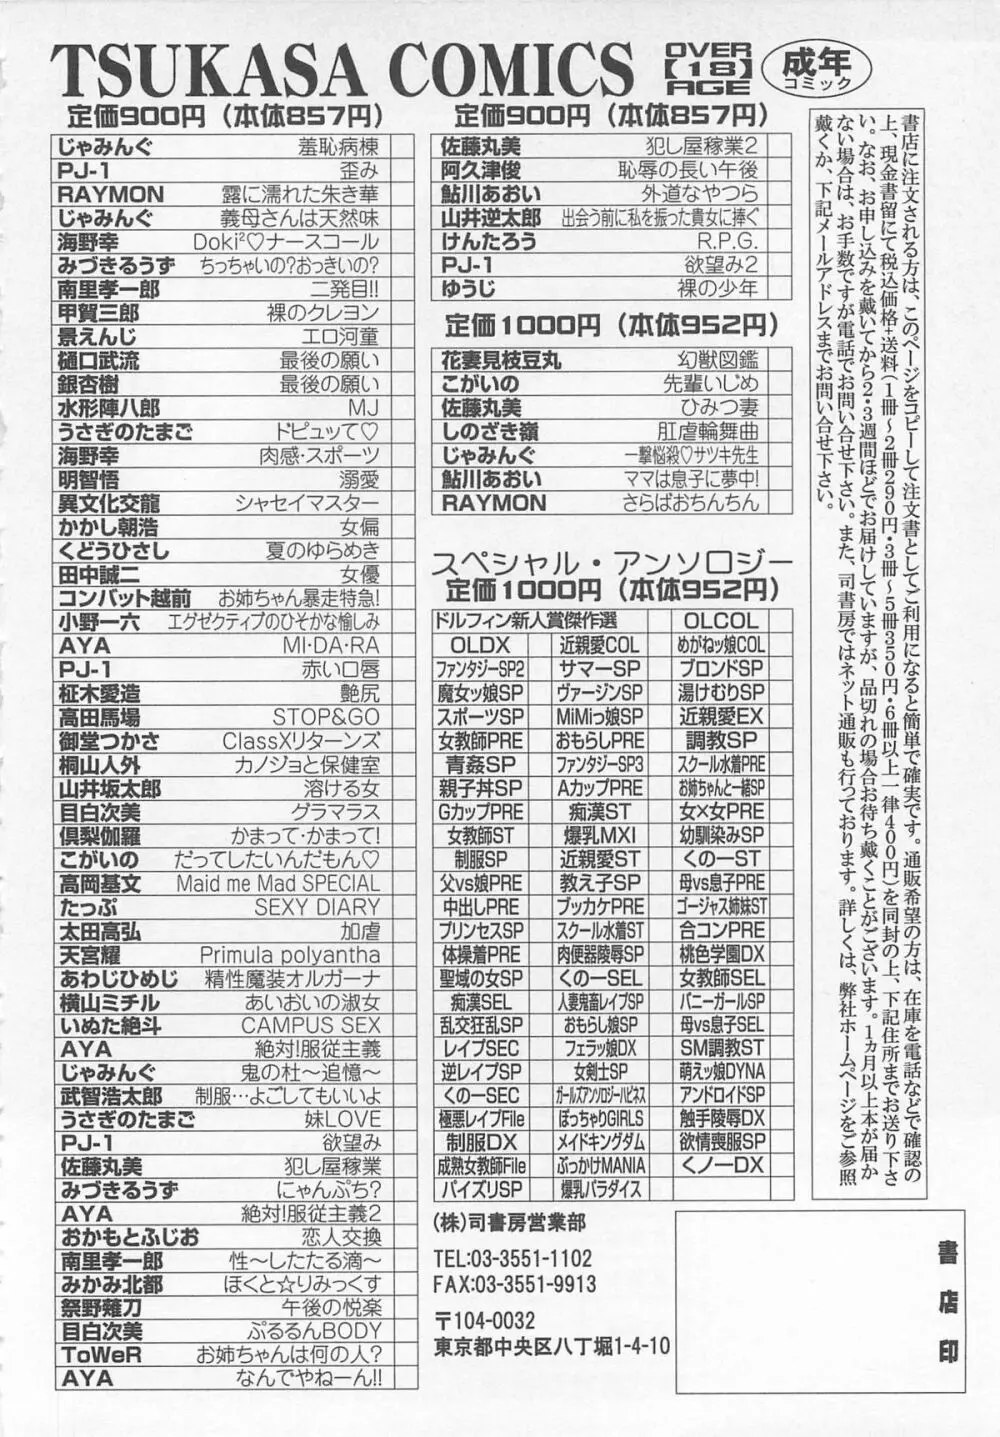 TSUKASA COMICS
OVER
【18】
AGE
成年
コミック
定価900円（本体857円）
じゃみんぐ 羞恥病棟
PJ-1 歪み
RAYMON 露に濡れた朱き華
じゃみんぐ 義母さんは天然味
海野幸 Doki²♡ナースコール
みづきるうず ちっちゃいの?おっきいの?
南里孝一郎 二発目!!
甲賀三郎 裸のクレヨン
景えんじ エロ河童
樋口武流 最後の願い
銀杏樹 最後の願い
水形陣八郎 MJ
うさぎのたまご ドピュッて♡
海野幸 肉感・スポーツ
明智悟 溺愛
異文化交龍 シャセイマスター
かかし朝浩 女偏
くどうひさし 夏のゆらめき
田中誠二 女優
コンバット越前 お姉ちゃん暴走特急!
小野一六 エグゼクティブのひそかな愉しみ
AYA MI・DA・RA
PJ-1 赤い口唇
柾木愛造 艶尻
高田馬場 STOP&GO
御堂つかさ ClassXリターンズ
桐山人外 カノジョと保健室
山井坂太郎 溶ける女
目白次美 グラマラス
倶梨伽羅 かまって・かまって!
こがいの だってしたいんだもん♡
高岡基文 Maid me Mad SPECIAL
たっぷ SEXY DIARY
太田高弘 加虐
天宮耀 Primula polyantha
あわじひめじ 精性魔装オルガーナ
横山ミチル あいおいの淑女
いぬた絶斗 CAMPUS SEX
AYA 絶対!服従主義
じゃみんぐ 鬼の杜〜追憶〜
武智浩太郎 制服…よごしてもいいよ
うさぎのたまご 妹LOVE
PJ-1 欲望み
佐藤丸美 犯し屋稼業
みづきるうず にゃんぷち?
AYA 絶対!服従主義2
おかもとふじお 恋人交換
南里孝一郎 性〜したたる滴〜
みかみ北都 ほくと☆りみっくす
祭野薙刀 午後の悦楽
目白次美 ぷるるんBODY
ToWeR お姉ちゃんは何の人?
AYA なんでやねーん!!
定価900円（本体857円）
佐藤丸美 犯し屋稼業2
阿久津俊 恥辱の長い午後
鮎川あおい 外道なやつら
山井逆太郎 出会う前に私を振った貴女に捧ぐ
けんたろう R.P.G.
PJ-1 欲望み2
ゆうじ 裸の少年
定価1000円（本体952円）
花妻見枝豆丸 幻獣図鑑
こがいの 先輩いじめ
佐藤丸美 ひみつ妻
しのざき嶺 肛虐輪舞曲
じゃみんぐ 一撃悩殺♡サツキ先生
鮎川あおい ママは息子に夢中!
RAYMON さらばおちんちん
スペシャル・アンソロジー
定価1000円（本体952円）
ドルフィン新人賞傑作選 OLCOL
OLDX 近親愛COL めがねッ娘COL
ファンタジーSP2 サマーSP ブロンドSP
魔女ッ娘SP ヴァージンSP 湯けむりSP
スポーツSP MiMiっ娘SP 近親愛EX
女教師PRE おもらしPRE 調教SP
青姦SP ファンタジーSP3 スクール水着PRE
親子丼SP AカップPRE お姉ちゃんと一緒SP
GカップPRE 痴漢ST 女×女PRE
女教師ST 爆乳MXI 幼馴染みSP
制服SP 近親愛ST くのーST
父vs娘PRE 教え子SP 母vs息子PRE
中出しPRE ブッカケPRE ゴージャス姉妹ST
プリンセスSP スクール水着ST 合コンPRE
体操着PRE 肉便器陵辱SP 桃色学園DX
聖域の女SP くのーSEL 女教師SEL
痴漢SEL 人妻鬼畜レイプSP バニーガールSP
乱交狂乱SP おもらし娘SP 母vs息子SEL
レイプSEC フェラッ娘DX SM調教ST
逆レイプSP 女剣士SP 萌えッ娘DYNA
くのーSEC ガールズアンソロジーハピネス アンドロイドSP
極悪レイプFile ぽっちゃりGIRLS 触手陵辱DX
制服DX メイドキングダム 欲情喪服SP
成熟女教師File ぶっかけMANIA くノーDX
パイズリSP 爆乳パラダイス
(株)司書房営業部
TEL:03-3551-1102
FAX:03-3551-9913
〒104-0032
東京都中央区八丁堀1-4-10
書店印
書店に注文される方は、このページをコピーして注文書としてご利用になると簡単で確実です。通販希望の方は、在庫を電話などで確認の
上、現金書留にて税込価格+送料(1冊〜2冊290円・3冊〜5冊350円・6冊以上一律400円)を同封の上、下記住所までお送り下さ
い。なお、お申し込みを戴いてから2・3週間ほどでお届けしていますが、品切れの場合お待ち戴くことがございます。1ヵ月以上本が届か
ない場合は、お手数ですが電話でお問い合せ下さい。また、司書房ではネット通販も行っております。詳しくは、弊社ホームページをご参照
戴くか、下記メールアドレスまでお問い合せ下さい。